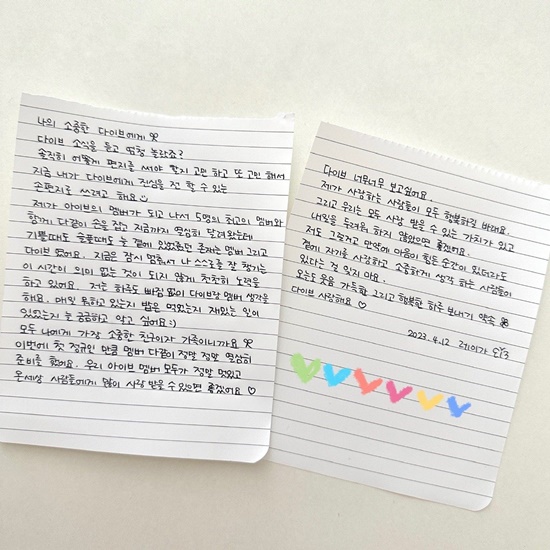 나의 소중한 다이브에게 🎀
다이브 소식을 듣고 엄청 놀랐죠?
솔직히 어떻게 편지를 써야 할지 고민 하고 또 고민 해서
지금 내가 다이브에게 진심을 전 할 수 있는
손편지를 쓰려고 해요
제가 아이브의 멤버가 되고 나서 5명의 최고의 멤버와
함께 다같이 손을 잡고 지금까지 열심히 달려왔는데
기쁠때도 슬플때도 늘 곁에 있었줬던 존재는 멤버 그리고
다이브 였어요. 지금은 잠시 멈춰서 나 스스로를 잘 챙기는
이 시간이 의미 없는 것이 되지 않게 천천히 노력을
하고 있어요. 저는 하루도 빠짐 없이 다이브랑 멤버 생각을
해요. 매일 뭐하고 있는지 밥은 먹었는지 재밌는 일이
있었는지 늘 궁금하고 알고 싶어요 :)
모두 나에게 가장 소중한 친구이자 가족이니까요 🎀
이번에 첫 정규인 만큼 멤버 다같이 정말 정말 열심히
준비를 했어요. 우리 아이브 멤버 모두가 정말 멋있고
온세상 사람들에게 많이 사랑 받을 수 있으면 좋겠어요 ♡
다이브 너무너무 보고싶어요.
제가 사랑하는 사람들이 모두 행복하길 바래요.
그리고 우리는 모두 사랑 받을 수 있는 가치가 있고
내일을 두려워 하지 않았으면 좋겠어요.
저도 그렇거고 만약에 마음이 힘든 순간이 있더라도
곁에 자기를 사랑하고 소중하게 생각 하는 사람들이
있다는 것 잊지 마요.
오늘도 웃음 가득한 그리고 행복한 하루 보내기 약속 🎀
다이브 사랑해요 ♡
2023. 4.12 레이가